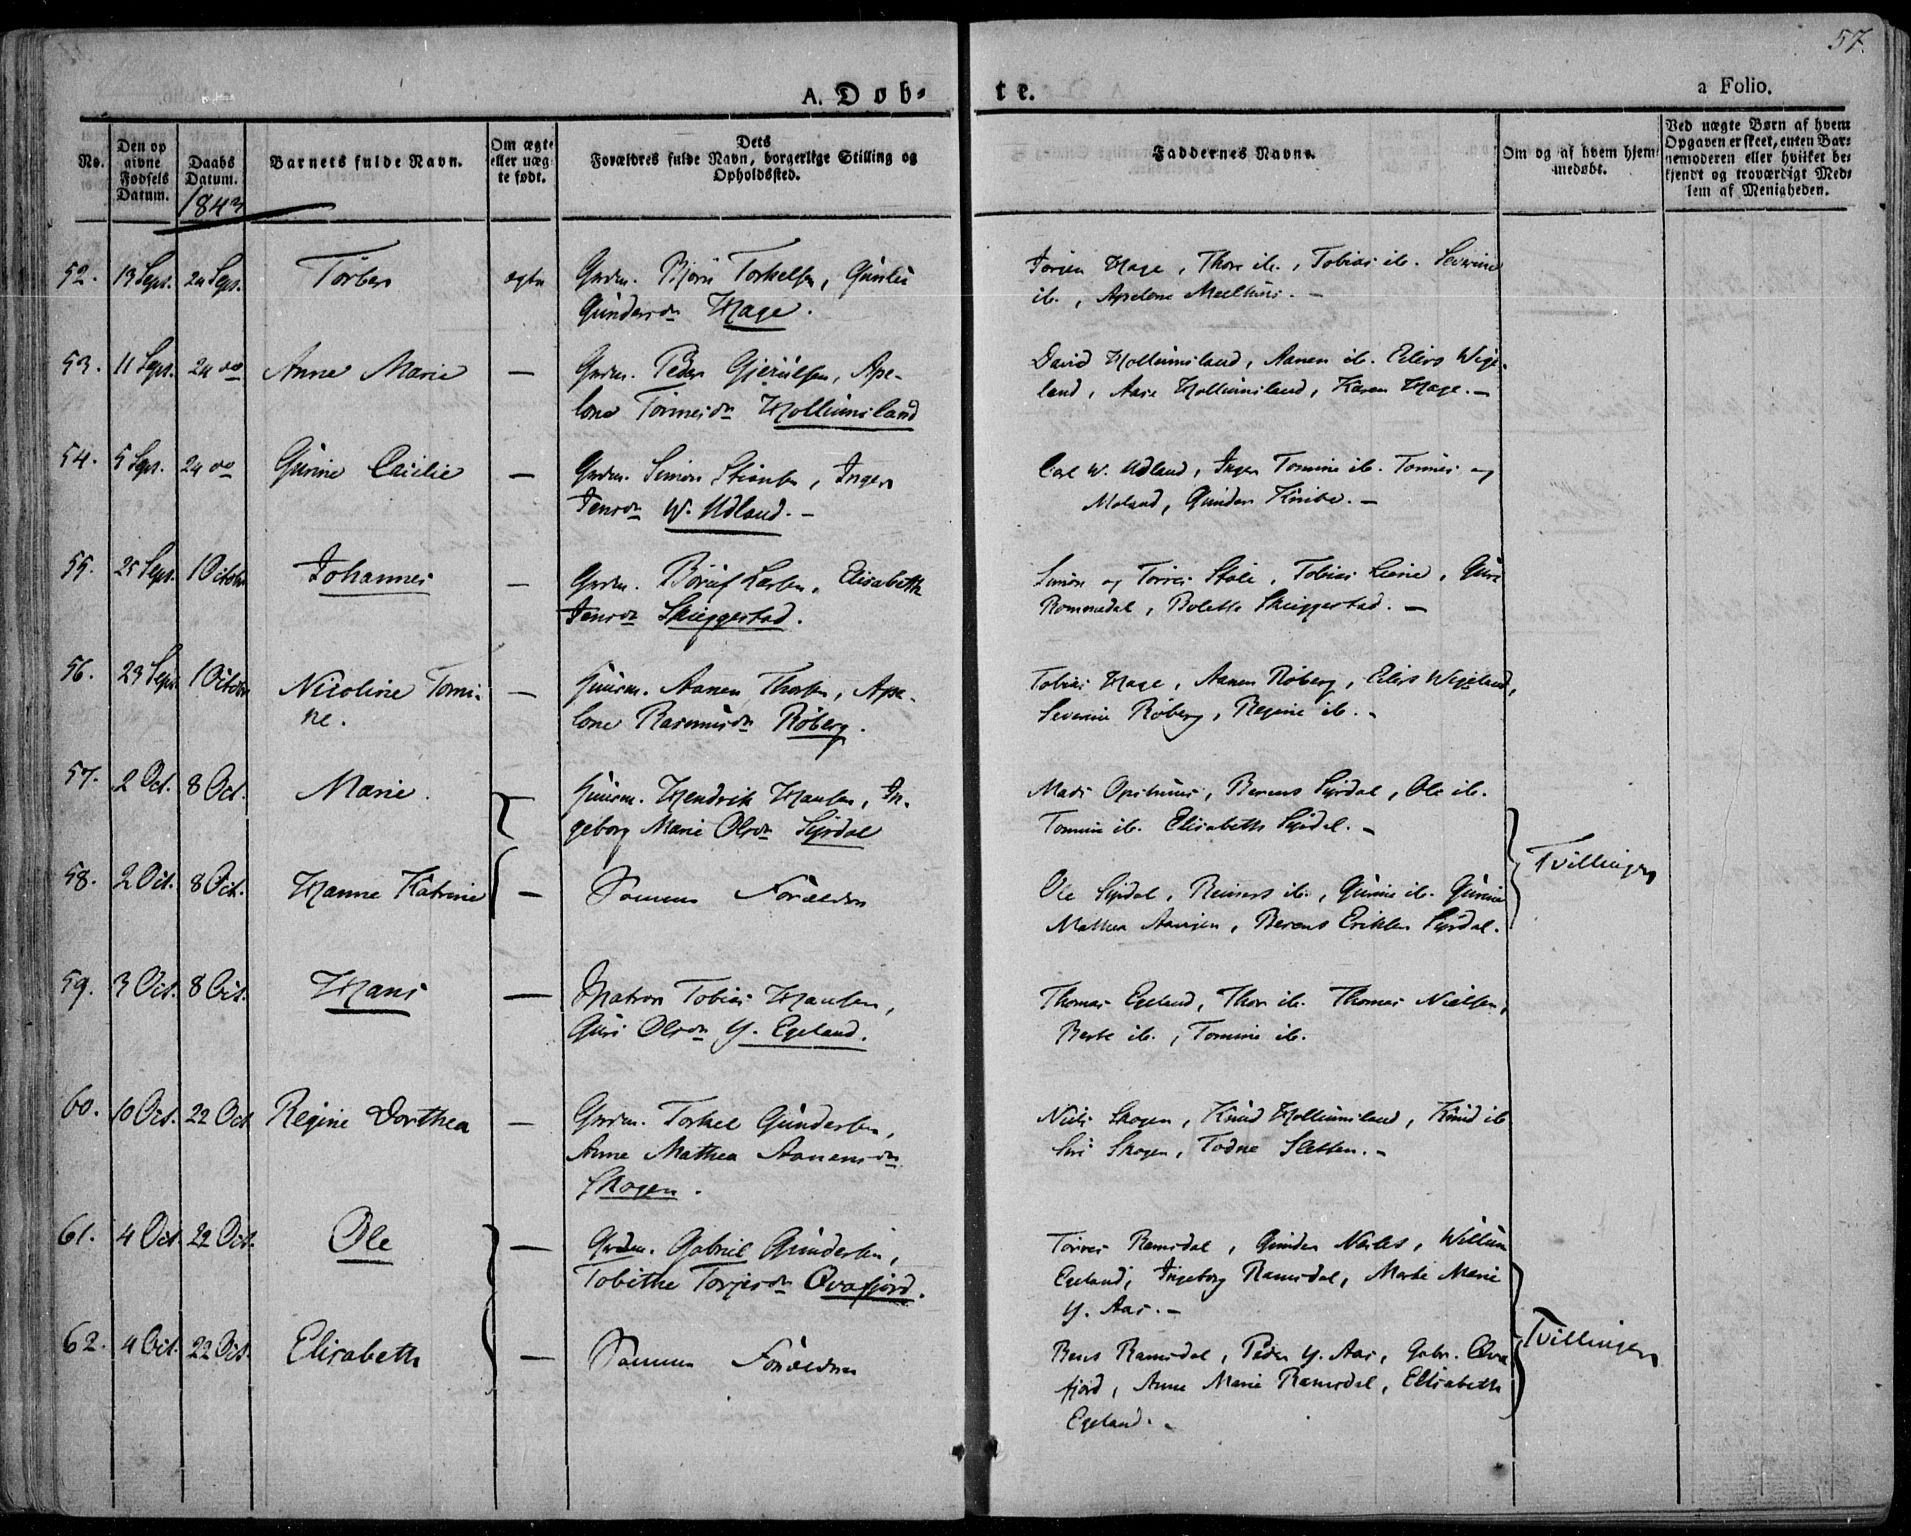 57.
A. Døb-
te.
a Folio.
No.
Den op
givne
Fødsels
Datum.
Daabs
Datum.
1843
Barnets fulde Navn.
Om ægte
eller uæg-
te født.
Dets
Forældres fulde Navn, borgerlige Stilling og
Opholdssted.
Faddernes Navne.
Om og af hvem hjem-
medøbt.
Ved uægte Børn af hvem
Opgaven er skeet, enten Bar-
nemoderen eller hvilket be-
kjendt og troværdigt Med-
lem af Menigheden.
52. 13 Sept. 24 Sept. Torber ægte Grdm. Bjørn Torkelsen, Gunild
Gundersdn Hage.
Jørgen Hage, Thore ib., Tobias ib. Severine
ib., Apelone Meelhuus. -
53. 11 Sept. 24 do Anne Marie — Grdm. Peder Gjerulsen, Ape-
lone Tønnesdn Hollumsland
David Hollumsland, Aanen ib. Eilers Wige-
land, Aase Hollumsland, Karen Hage. -
54. 5 Sept. 24 do Gurine Cecilie — Grdm. Simon Stiansen, Inger
Jensdn W. Udland. -
Carl W. Udland, Inger Tomine ib. Tønnes og
Moland, Gunder Knibe. -
55. 25 Sept. 1 October Johannes — Grdm. Børuf Larsen, Elisabeth
Jensdn Skieggestad.
Simon og Torres Støle, Tobias Liene, Guri
Rommedal, Bolette Skieggestad. -
56. 23 Sept. 1 October Nicoline Tomi-
ne. — Huusm. Aanen Thorsen, Ape-
lone Rasmusdn Røberg.
Tobias Hage, Aanen Røberg, Eilers Wigeland,
Severine Røberg, Regine ib. -
57. 2 Oct. 8 Oct. Marie. — Huusm. Hendrik Hansen, In-
geborg Marie Olsdn Syrdal
Mads Opshuus, Berens Syrdal, Ole ib.
Tomine ib. Elisabeth Syrdal. -
Tvillinger
58. 2 Oct. 8 Oct. Hanne Katrine — Samme Forældre
Ole Syrdal, Reiners ib., Gunnie ib. Gurine
Mathea Aavigen, Berens Eriksen Syrdal.
59. 3 Oct. 8 Oct. Hans — Matros Tobias Hansen,
Guri Olsdn Y. Egeland.
Thomas Egeland, Thor ib. Thomas Nielsen,
Berte ib., Tomine ib.
60. 10 Oct. 22 Oct Regine Dorthea — Grdm. Torkel Gundersen,
Anne Mathea Aanensdn
Skogen.
Niels Skogen, Knud Hollumsland, Knud ib
Siri Skogen, Todne Sletten. -
61. 4 Oct. 22 Oct. Ole — Grdm. Gabriel Gundersen,
Tobithe Torjesdn Qvafjord.
Torres Ramsdal, Gunder Narles, Willum
Egeland, Ingeborg Ramsdal, Marte Marie
Y. Aas. -
Tvillinger
62. 4 Oct. 22 Oct. Elisabeth — Samme Forældre
Bent Ramsdal, Peder Y. Aas, Gabr. Qva
fjord, Anne Marie Ramsdal, Elisabeth
Egeland. -